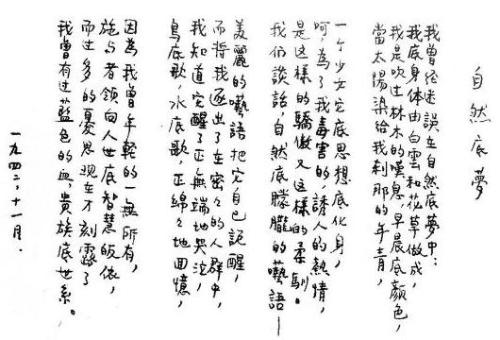 自然底夢
我曾經迷誤在自然底夢中;
我底身體由白雲和花草做成,
我是吹过林木的嘆息,早晨底顏色,
當太陽染給我剎那的年青,
一个少女它底思想底化身,
呵,為了我毒害的,誘人的热情,
是这樣的驕傲又这樣的柔馴。
我们談話,自然底朦朧的囈語——
美麗的囈語把它自己說醒,
而将我逐出了在密々的人群中,
我知道它醒了正無端地哭泣,
鳥底歌,水底歌,正綿々地回憶,
因為我曾年輕的一無所有,
施与者領向人世底智慧皈依,
而过多的憂思現在才刻露了
我曾有过藍色的血,貴族底世系。
一九四二,十一月.